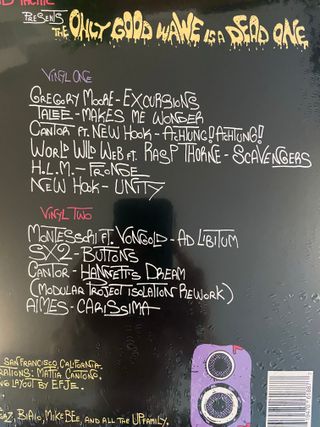 PRESENTS
THE ONLY GOOD WAWE IS A DEAD ONE
VINYL ONE
GREGORY MOORE - EXCURSIONS
TALEE - MAKES ME WONDER
CANTOR FT. NEW HOOK - ACHTUNG! ACHTUNG!
WORLD WILD WEB FT. RASP THORNE - SCAVENGERS
H.L.M. - FRONDE
NEW HOOK - UNITY
VINYL TWO
MONTESSORI FT. VONGOLD - AD LIBITUM
SX2 - BUTTONS
CANTOR - HANNETT'S DREAM
(MODULAR PROJECT ISOLATION REWORK)
AIMES - CARISSIMA
SAN FRANCISCO, CALIFORNIA.
MATTIA
LAYOUT BY E.F.JE.
BIAIO, MIKE BEE, AND ALL THE UP FAMILY.